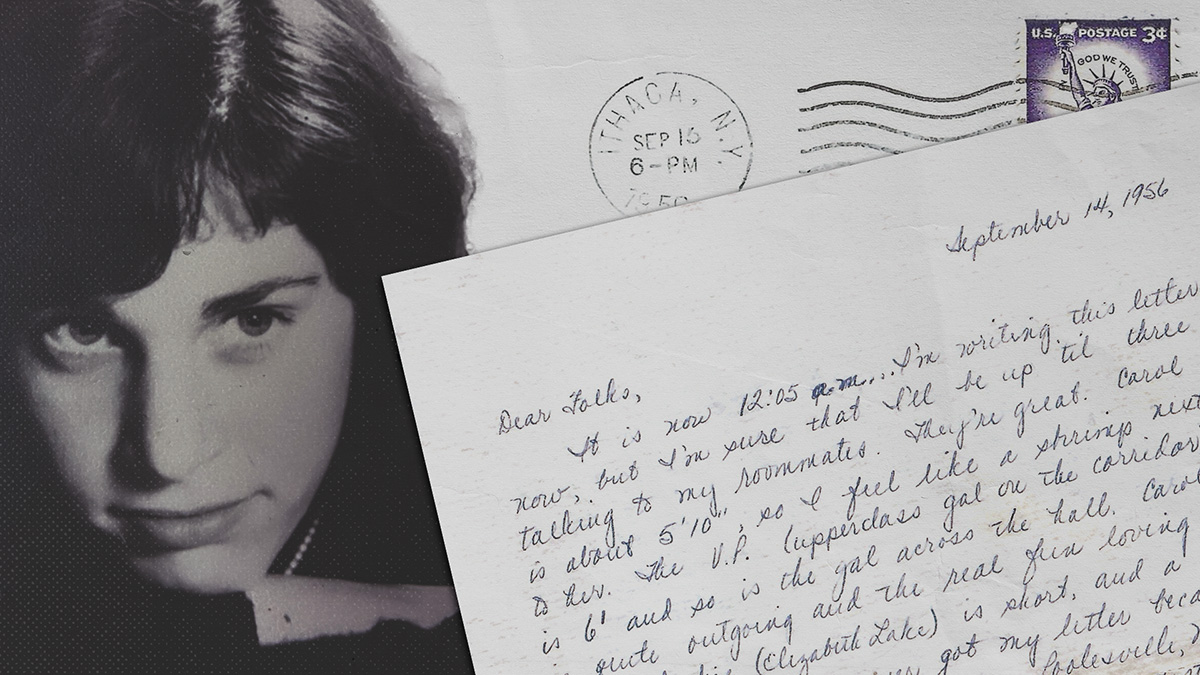 U.S. POSTAGE 3¢
GOD WE TRUST
ITHACA, N.Y.
SEP 15
6-PM
September 14, 1956
Dear Folks,
It is now 12:05 a.m....I'm writing this letter
now, but I'm sure that I'll be up 'til three
talking to my roommates. They're great. Carol
is about 5'10", so I feel like a shrimp next
to her. The V.P. (upperclass gal on the corridor
is 6' and so is the gal across the hall. Carol
quite outgoing and the real fun loving
(Elizabeth Lake) is short, and a
got my letter beca
Poolesville,